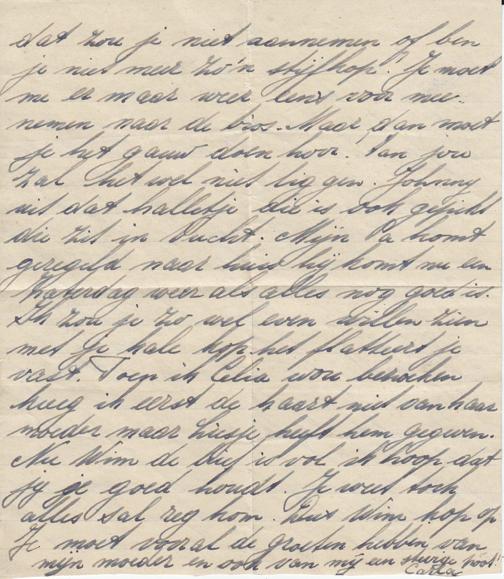 dat zou je niet aannemen of ben
je niet meer zo'n stijfkop. Je moet
me er maar weer eens voor mee-
nemen naar de bios. Maar dan moet
je het gauw doen hoor. Van jou
zal het wel niet liggen. Johnny
uit dat halletje die is ook gepikt
die zit in Vucht. Mijn Pa komt
geregeld naar huis hij komt nu een
Zaterdag weer als alles nog goed is.
Ik zou je zo wel even willen zien
met je kale kop het flatteert je
vast. Toen ik Celia wou bezoeken
kreeg ik eerst de kaart niet van haar
moeder maar Liesje heeft hem gegeven.
Nu Wim de brief is vol ik hoop dat
jij je goed houdt. Je weet toch
alles sal reg kom. Dus Wim kop op
Je moet vooral de groeten hebben van
mijn moeder en ook van mij een stevige poot!
Carla